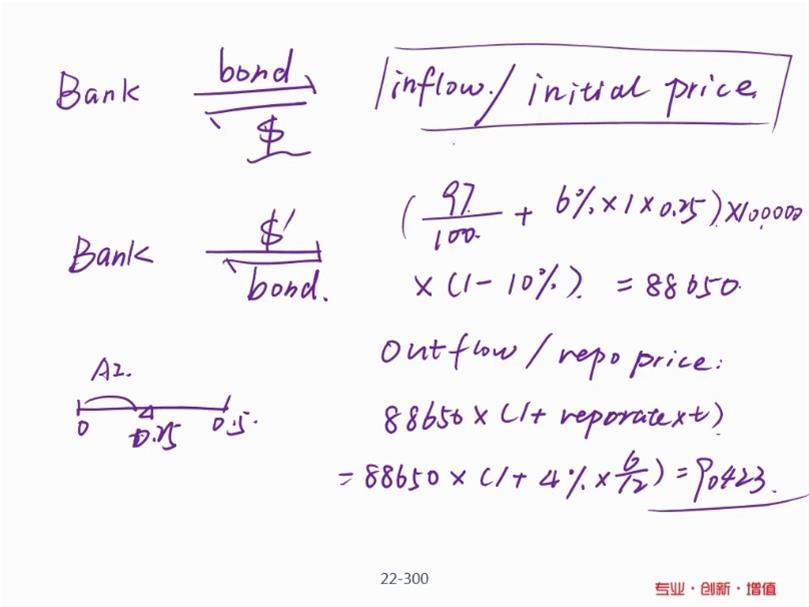 Bank bond $
inflow / initial price
Bank $' bond.
(97/100 + 6% × 1 × 0.25) × 100000
× (1 - 10%) = 88650.
AI.
0 0.25 0.5.
Outflow / repo price:
88650 × (1 + repo rate × t)
= 88650 × (1 + 4% × 6/12) = 90423.
22-300
专业·创新·增值